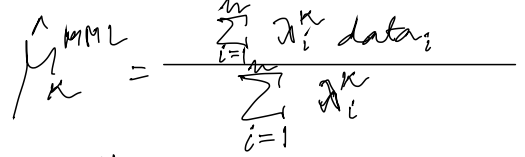 $\hat{\mu}_K^{MML} = \frac{\sum_{i=1}^{n} \lambda_i^K \, data_i}{\sum_{i=1}^{n} \lambda_i^K}$